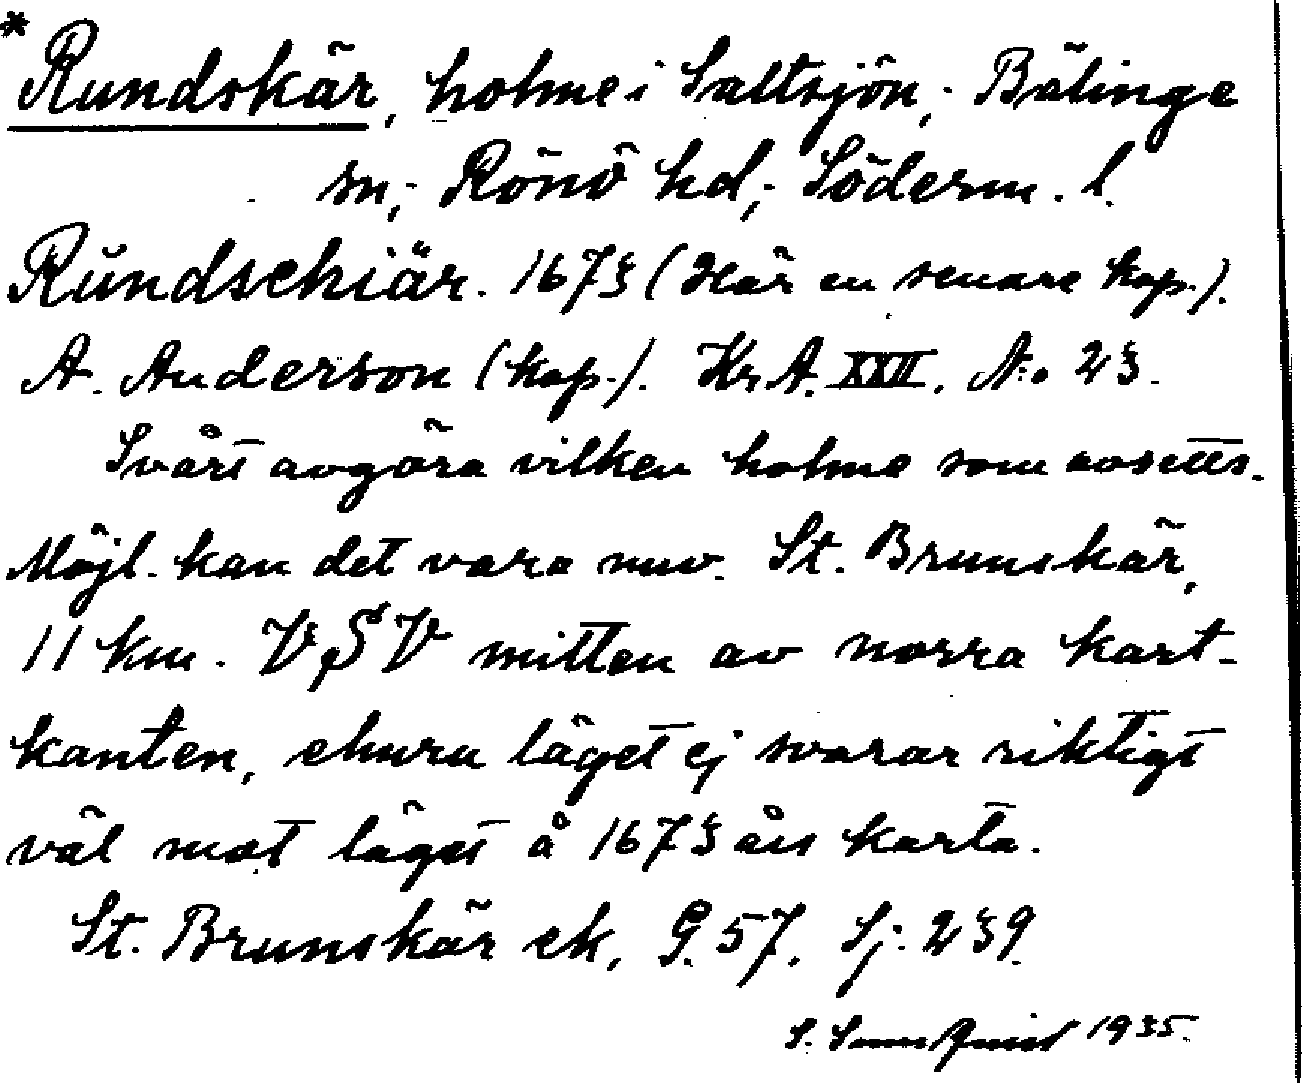 * Rundskär, holme i Saltsjön, Bälinge
sn, Rönö hd, Söderm. l.
Rŭndschiär. 1673 (Här en senare kop.).
A. Anderson (kop.). Kr A. XXII. No 23.
Svårt avgöra vilken holme som avsetts.
Möjl. kan det vara nuv. St. Brunskär,
11 km. V S V mitten av norra kart-
kanten, ehuru läget ej svarar riktigt
väl mot läget å 1673 års karta.
St. Brunskär ek, G. 57. Sj. 239.
S. 1935.